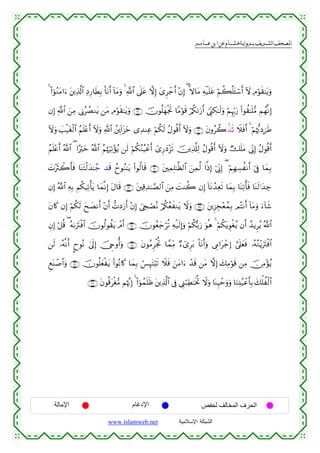 المصحف الشريف برواية هشام عن ابن عامر
وَيَٰقَوْمِ لَآ أَسْـَٔلُكُمْ عَلَيْهِ مَالًا إِنْ أَجْرِىَ إِلَّا عَلَى ٱللَّهِ وَمَآ أَنَا۠ بِطَارِدِ ٱلَّذِينَ ءَامَنُوٓا۟
إِنَّهُم مُّلَٰقُوا۟ رَبِّهِمْ وَلَٰكِنِّىٓ أَرَىٰكُمْ قَوْمًا تَجْهَلُونَ ﴿٢٩﴾ وَيَٰقَوْمِ مَن يَنصُرُنِى مِنَ ٱللَّهِ إِن
طَرَدتُّهُمْ أَفَلَا تَذَّكَّرُونَ ﴿٣٠﴾ وَلَآ أَقُولُ لَكُمْ عِندِى خَزَآئِنُ ٱللَّهِ وَلَآ أَعْلَمُ ٱلْغَيْبَ وَلَآ
أَقُولُ إِنِّى مَلَكٌ وَلَآ أَقُولُ لِلَّذِينَ تَزْدَرِىٓ أَعْيُنُكُمْ لَن يُؤْتِيَهُمُ ٱللَّهُ خَيْرًا ٱللَّهُ أَعْلَمُ
بِمَا فِىٓ أَنفُسِهِمْ إِنِّىٓ إِذًا لَّمِنَ ٱلظَّٰلِمِينَ ﴿٣١﴾ قَالُوا۟ يَٰنُوحُ قَدْ جَٰدَلْتَنَا فَأَكْثَرْتَ
جِدَٰلَنَا فَأْتِنَا بِمَا تَعِدُنَآ إِن كُنتَ مِنَ ٱلصَّٰدِقِينَ ﴿٣٢﴾ قَالَ إِنَّمَا يَأْتِيكُم بِهِ ٱللَّهُ إِن
شَآءَ وَمَآ أَنتُم بِمُعْجِزِينَ ﴿٣٣﴾ وَلَا يَنفَعُكُمْ نُصْحِىٓ إِنْ أَرَدتُّ أَنْ أَنصَحَ لَكُمْ إِن كَانَ
ٱللَّهُ يُرِيدُ أَن يُغْوِيَكُمْ هُوَ رَبُّكُمْ وَإِلَيْهِ تُرْجَعُونَ ﴿٣٤﴾ أَمْ يَقُولُونَ ٱفْتَرَىٰهُ قُلْ إِنِ
ٱفْتَرَيْتُهُۥ فَعَلَىَّ إِجْرَامِى وَأَنَا۠ بَرِىٓءٌ مِّمَّا تُجْرِمُونَ ﴿٣٥﴾ وَأُوحِىَ إِلَىٰ نُوحٍ أَنَّهُۥ لَن
يُؤْمِنَ مِن قَوْمِكَ إِلَّا مَن قَدْ ءَامَنَ فَلَا تَبْتَئِسْ بِمَا كَانُوا۟ يَفْعَلُونَ ﴿٣٦﴾ وَٱصْنَعِ
ٱلْفُلْكَ بِأَعْيُنِنَا وَوَحْيِنَا وَلَا تُخَٰطِبْنِى فِى ٱلَّذِينَ ظَلَمُوٓا۟ إِنَّهُم مُّغْرَقُونَ ﴿٣٧﴾
الحرف المخالف لحفص الإدغام الإمالة
الشبكة الإسلامية www.islamweb.net